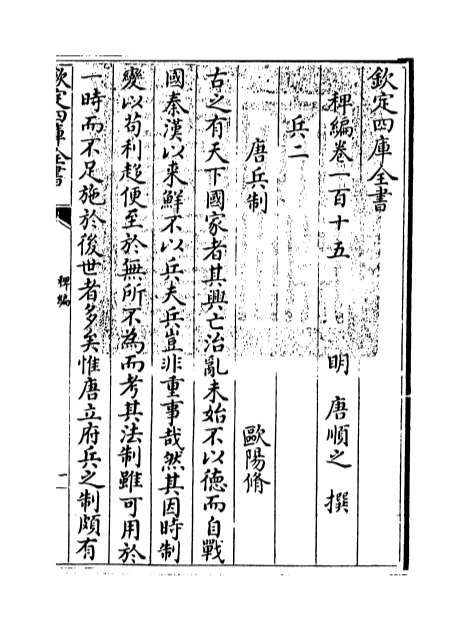 欽定四庫全書
稗編卷一百十五
明 唐順之 撰
兵二
唐兵制 歐陽脩
古之有天下國家者其興亡治亂未始不以徳而自戰
國秦漢以來鮮不以兵夫兵豈非重事哉然其因時制
變以苟利趨便至於無所不為而考其法制雖可用於
一時而不足施於後世者多矣惟唐立府兵之制頗有
欽定四庫全書
稗編
一